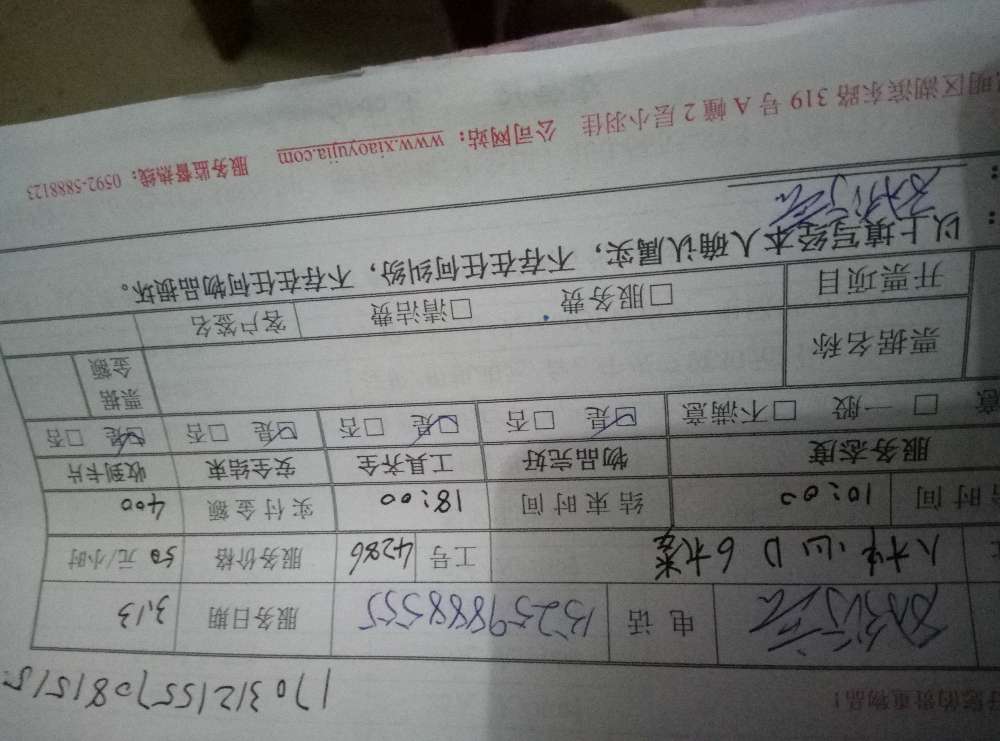 好您的贵重物品！
170312155708151515
电话 13259888555 服务日期 3.13
人才中心D 6 工号 4286 服务价格 50 元/小时
时间 10:00 结束时间 18:00 实付金额 400
服务态度 物品完好 工具齐全 安全结束 收到卡片
意 □一般 □不满意 ☑是 □否 ☑是 □否 ☑是 □否 ☑是 □否
票据名称 票据金额
开票项目 □服务费 □清洁费 客户签名
以上填写经本人确认属实，不存在任何纠纷，不存在任何物品损坏。
明区湖滨东路 319 号 A 幢 2 层小羽佳 公司网站：www.xiaoyujia.com 服务监督热线：0592-5888123